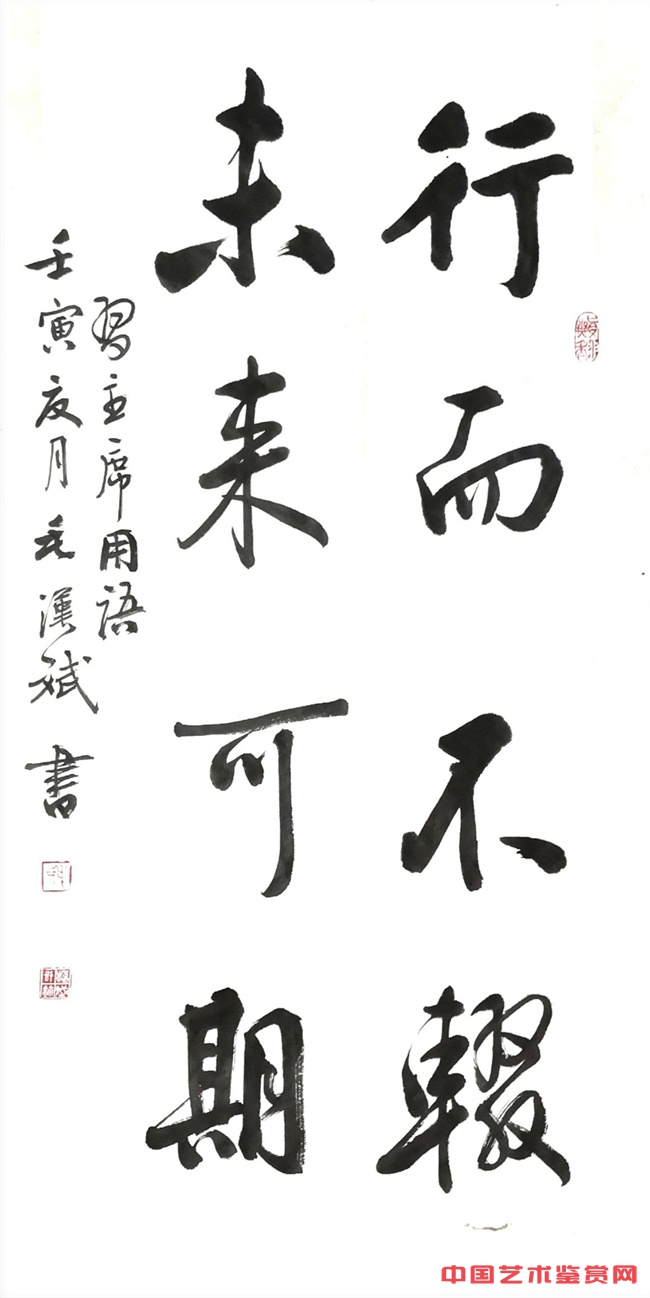 行而不辍
未来可期
習主席用語
壬寅夜月毛漢斌書
中国艺术鉴赏网